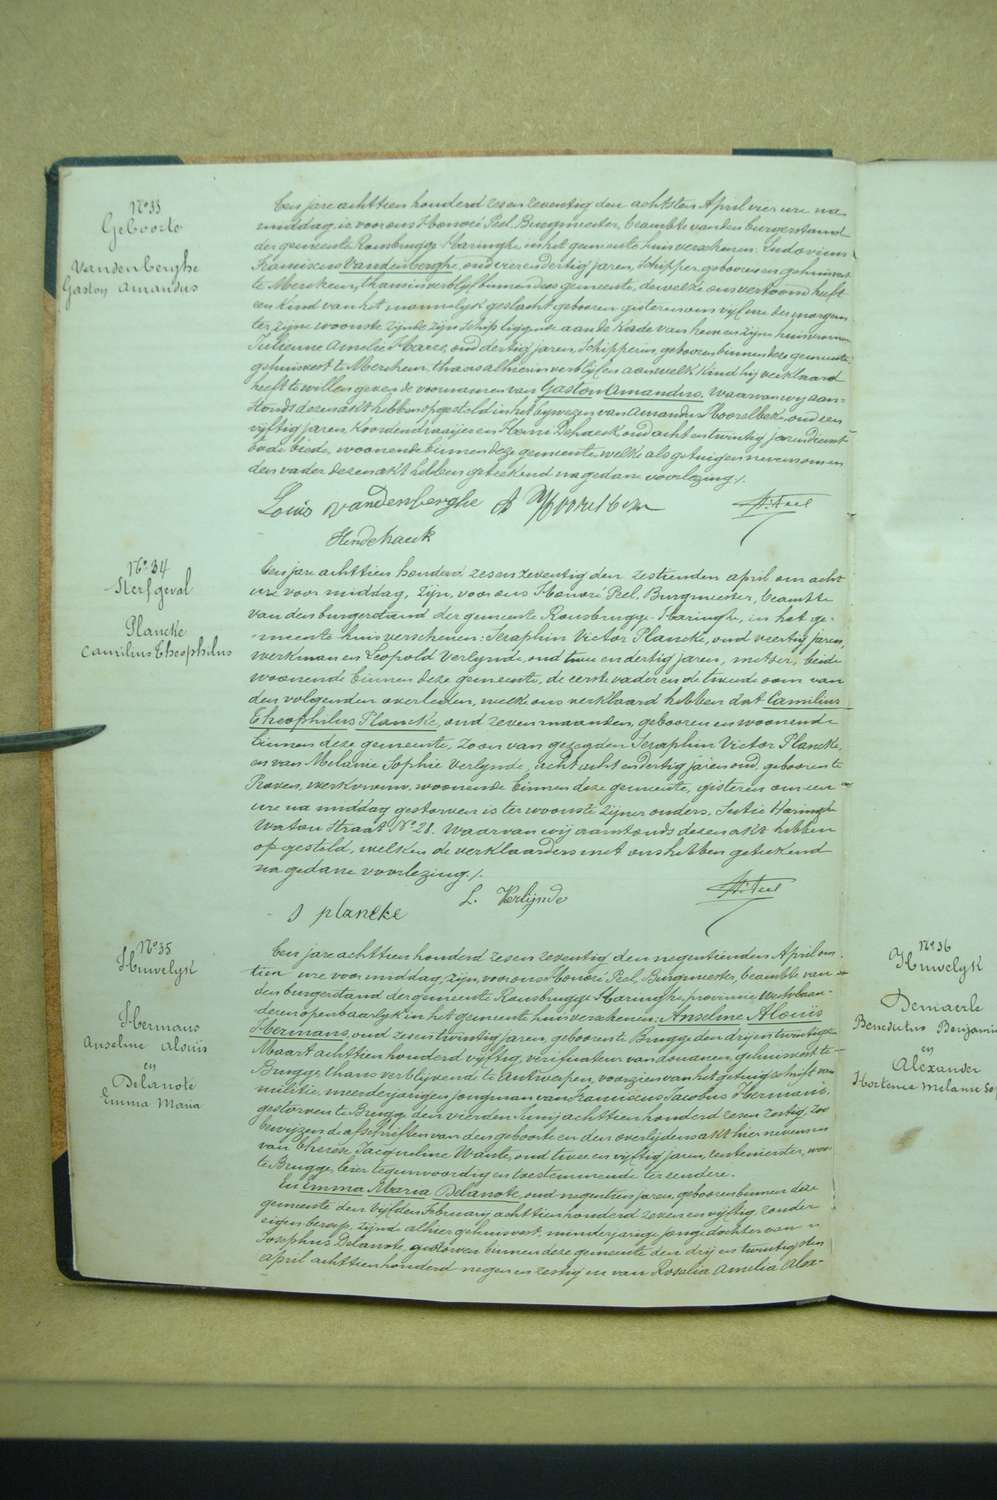 N° 33
Geboorte
Vandenberghe
Gaston Amandus
Een jare achttien honderd zes en zeventig den achtsten April vier ure na
middag, is voor ons Honoré Peel, Burgmeester, beambte van den burgerstand
der gemeente Rousbrugge-Haringhe, in het gemeente huis verschenen: Ludovicus
Franciscus Vandenberghe, oud vier en dertig jaren, schipper, geboren en gehuisvest
te Merckem, thans in verblijf binnen deze gemeente, dewelke ons vertoond heeft
een kind van het mannelijk geslacht geboren gisteren om vijf ure des morgens
ter zijne woonste zijnde zijn schip liggende aan de kade van hem en zijne huisvrouw
Julienne Amelie Haeze, oud dertig jaren, schipperin, geboren binnen deze gemeente
gehuisvest te Merckem, thans alhier in verblijf en aan welk kind hij verklaard
heeft te willen geven de voornamen van Gaston Amandus. Waarvan wij aan-
stonds dezen akt hebben opgesteld in het bijwezen van Amandus Moorelbeke, oud een
vijftig jaren, koordendraaijer en Henri Dehaeck oud acht en twintig jaren,
beide, woonende binnen deze gemeente welke als getuigen nevens ons en
den vader dezen akt hebben geteekend na gedane voorlezing /.
Louis Vandenberghe
Hr Peel
Hendehaeck
N° 34
Sterfgeval
Plancke
Camilius Theophilus
Een jare achttien honderd zes en zeventig den zestienden april om acht
ure voor middag, zijn, voor ons Honoré Peel, Burgmeester, beambte
van den burgerstand der gemeente Rousbrugge-Haringhe, in het ge-
meente huis verschenen: Seraphin Victor Plancke, oud veertig jaren,
werkman en Leopold Verlynde, oud twee en dertig jaren, metser, beide
woonende binnen deze gemeente, de eerste vader en de tweede oom van
den volgenden overleden, welke ons verklaard hebben dat Camilius
Theophilus Plancke, oud zeven maanden, geboren en woonende
binnen deze gemeente, zoon van gezegden Seraphin Victor Plancke
en van Melanie Sophie Verlynde, acht en dertig jaren oud, geboren te
Proven, werkvrouw, woonende binnen deze gemeente, gisteren om een
ure na middag gestorven is ter woonste zijner ouders, Sectie Haringhe
Watou Straat N° 28. Waarvan wij aanstonds dezen akt hebben
opgesteld, welken de verklaarders met ons hebben geteekend
na gedane voorlezing /.
S plancke
L. Verlijnde
Hr Peel
N° 35
Huwelyk
Hermans
Anselme Alouis
en
Delanote
Emma Maria
Een jare achttien honderd zes en zeventig den negentienden April om
tien ure voor middag, zijn, voor ons Honoré Peel, Burgmeester, beambte van
den burgerstand der gemeente Rousbrugge-Haringhe, provincie Westvlaan-
deren openbaarlyk in het gemeente huis verschenen: Anselme Alouis
Hermans, oud zes en twintig jaren, geboren te Brugge den drij en twintigsten
Maart achttien honderd vijftig, verificateur van douanen, gehuisvest te
Brugge, thans verblijvende te Antwerpen, voorzien van het getuigschrift van
militie, meerderjarigen jongman van Franciscus Jacobus Hermans,
gestorven te Brugge den vierden Junij achttien honderd zes en zestig, zoo
bewijzen de afschriften van den geboorte en den overlijdens akt hier nevens en
van Therese Jacqueline Wante, oud twee en vijftig jaren, rentenierster, woon
te Brugge, hier tegenwoordig en toestemmende ter eendere.
En Emma Maria Delanote, oud negentien jaren, geboren binnen deze
gemeente den vijfden February achttien honderd zeven en vijftig, zonder
eigen beroep, zijnde alhier gehuisvest, minderjarige jonge dochter van
Josephus Delanote, gestorven binnen deze gemeente den drij en twintigsten
April achttien honderd negen en zestig en van Rosalia Amelia Aloa-
N° 36
Huwelyk
Demaerle
Benedictus Benjamin
en
Alexander
Hortence Melanie So